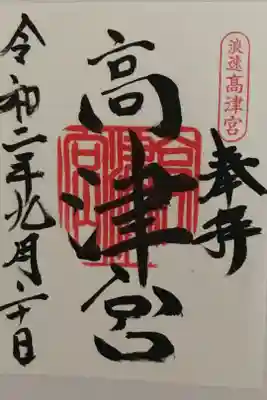 浪速高津宮
奉拝
高津宮
令和二年九月二十日